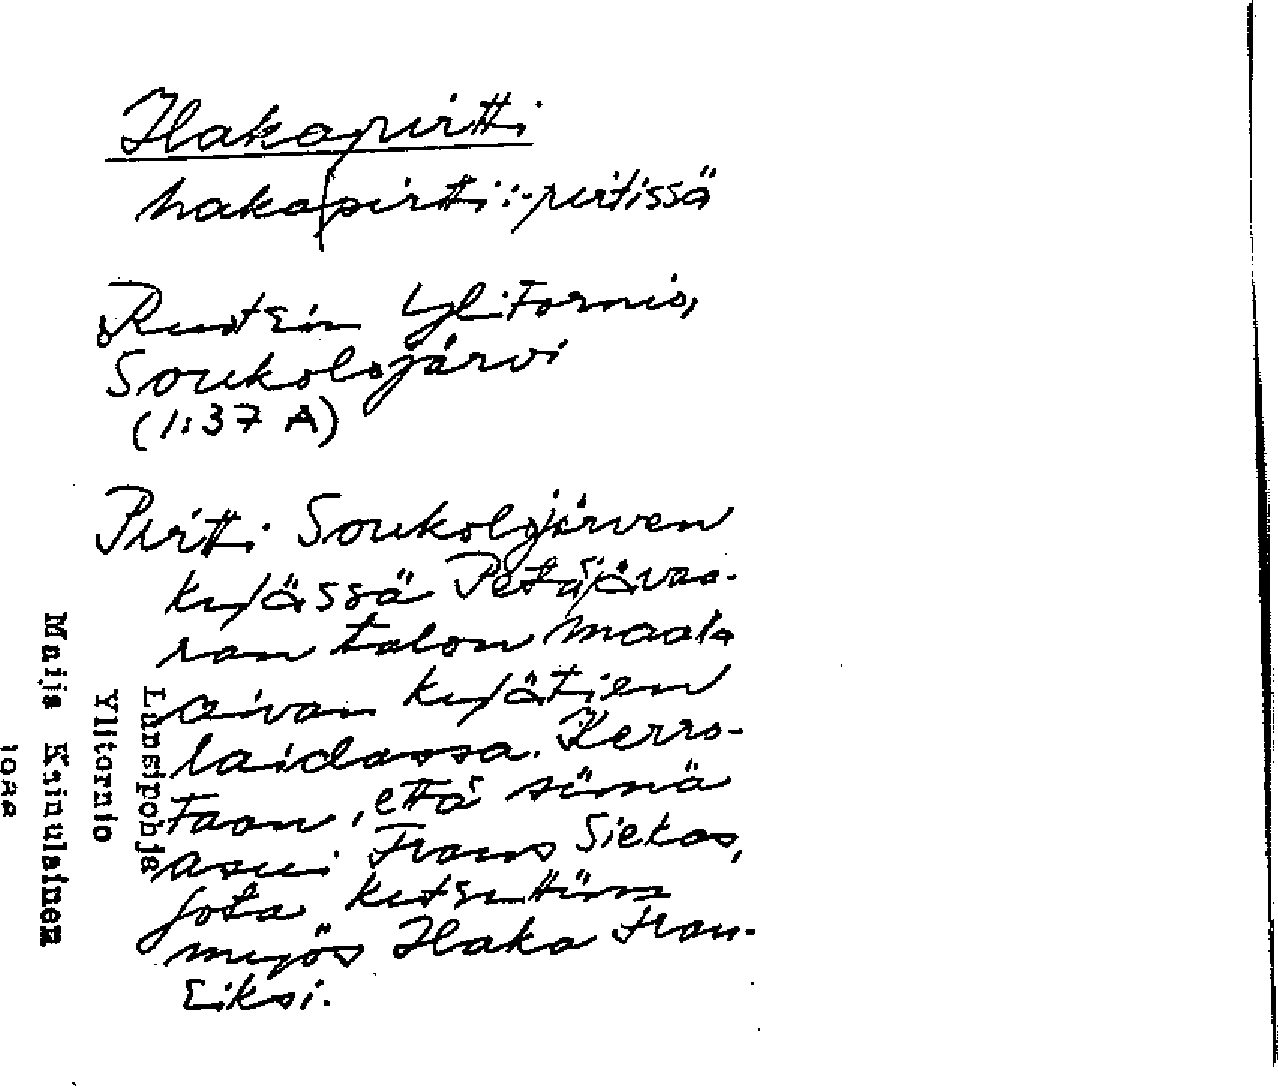 Hakapirtti
hakapirtti : -pirtissä
Ruotsin Ylitornio,
Soukolojärvi
(1:37 A)
Pirtti Soukolojärven
kylässä Petäjävaa-
ran talon maala
aivan kylätien
laidassa. Kerro-
taan, että siinä
asui Frans Siekas,
jota kutsuttiin
myös Haka Fran-
siksi.
Länsipohja
Ylitornio
Maija Kainulainen